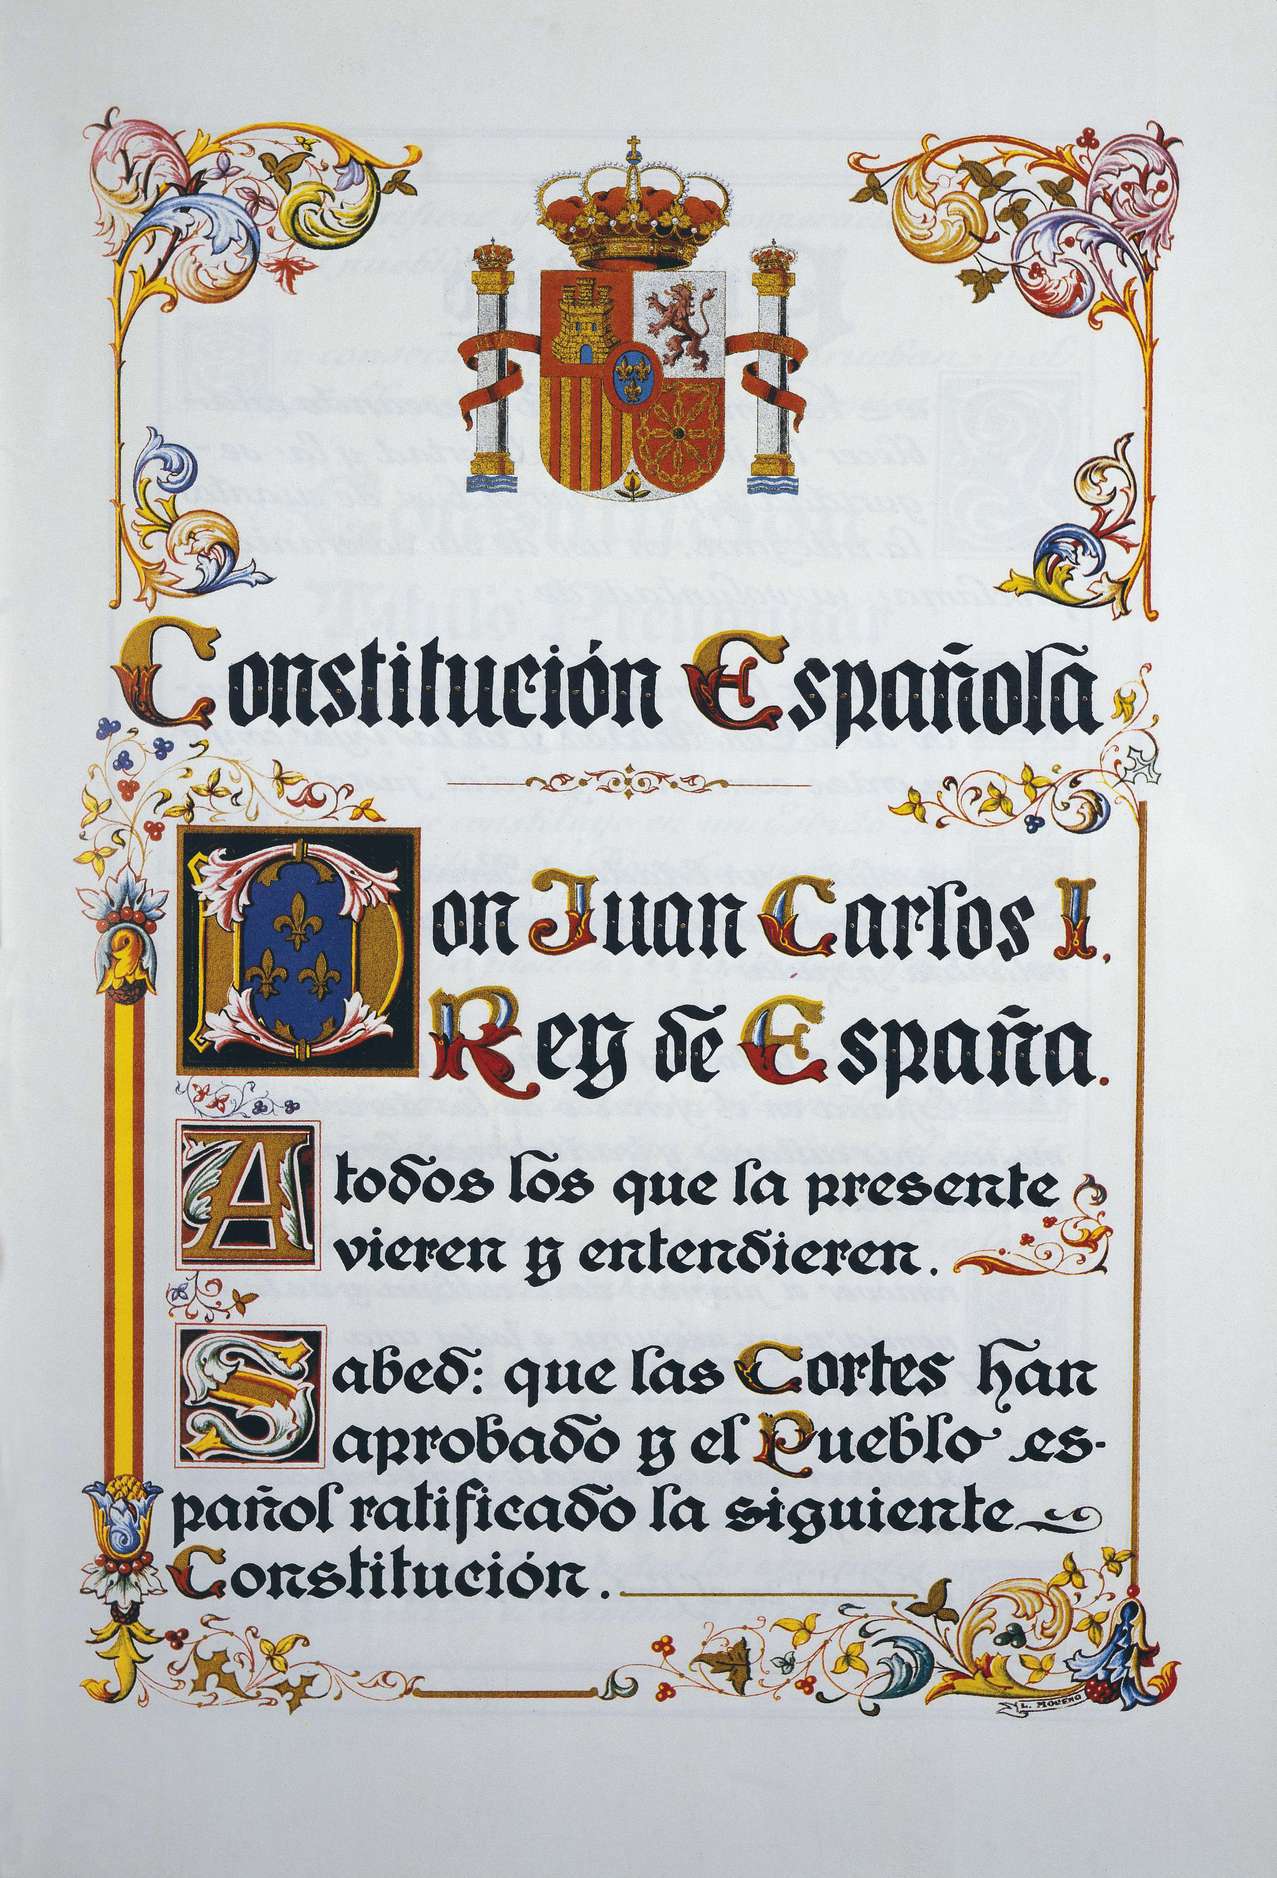 Constitución Española
Don Juan Carlos I.
Rey de España.
A todos los que la presente
vieren y entendieren.
Sabed: que las Cortes han
aprobado y el Pueblo es-
pañol ratificado la siguiente
Constitución.
L. MORENO